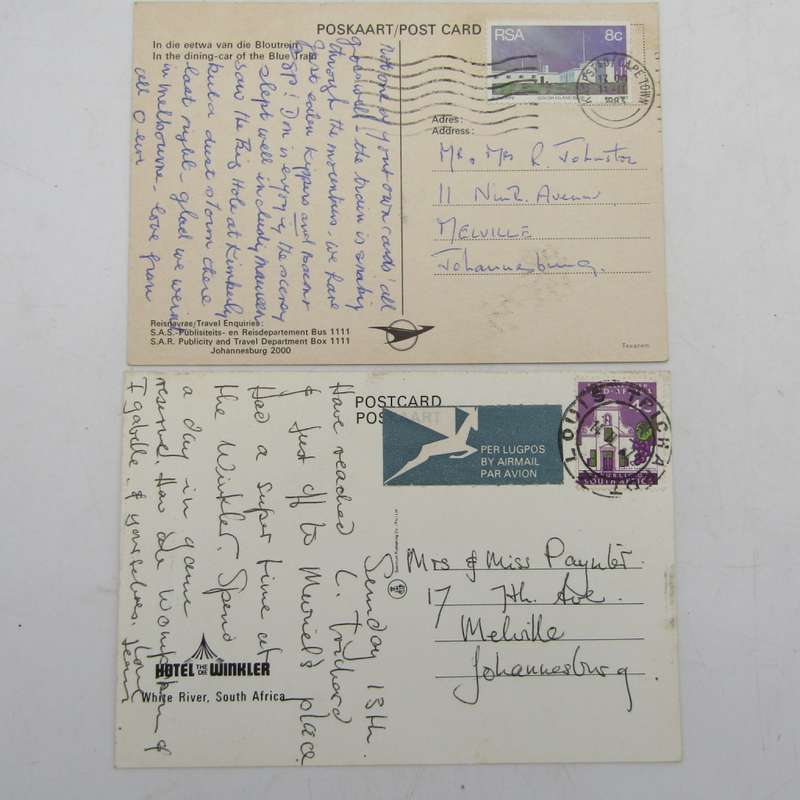 POSKAART/POST CARD
In die eetwa van die Bloutrein
In the dining-car of the Blue Train
RSA 8c
CAPE TOWN
Not one of your own cards! all
goes well - the train is snaking
through the mountains - we have
just eaten kippers and bacon
Don is enjoying the scenery
slept well including Maureen
saw the Big Hole at Kimberley
but a dust storm there
last night - glad we weren't
in Melbourne - love from
all
Adres:
Address:
Mr & Mrs R. Johnston
11 Ninth Avenue
MELVILLE
Johannesburg.
Reisnavrae/Travel Enquiries:
S.A.S.-Publisiteits- en Reisdepartement Bus 1111
S.A.R. Publicity and Travel Department Box 1111
Johannesburg 2000
POSTCARD
POSKAART
PER LUGPOS
BY AIRMAIL
PAR AVION
LOUIS TRICHARDT
SOUTH AFRICA
Sunday 13th.
Have reached L. Trichard
& just off to Muriel's place
Had a super time at
the Winkler. Spend
a day in game
reserve. How are
& yourselves. Love
Mrs & Miss Paynter.
17 7th. Ave.
Melville
Johannesburg.
HOTEL THE DIE WINKLER
White River, South Africa